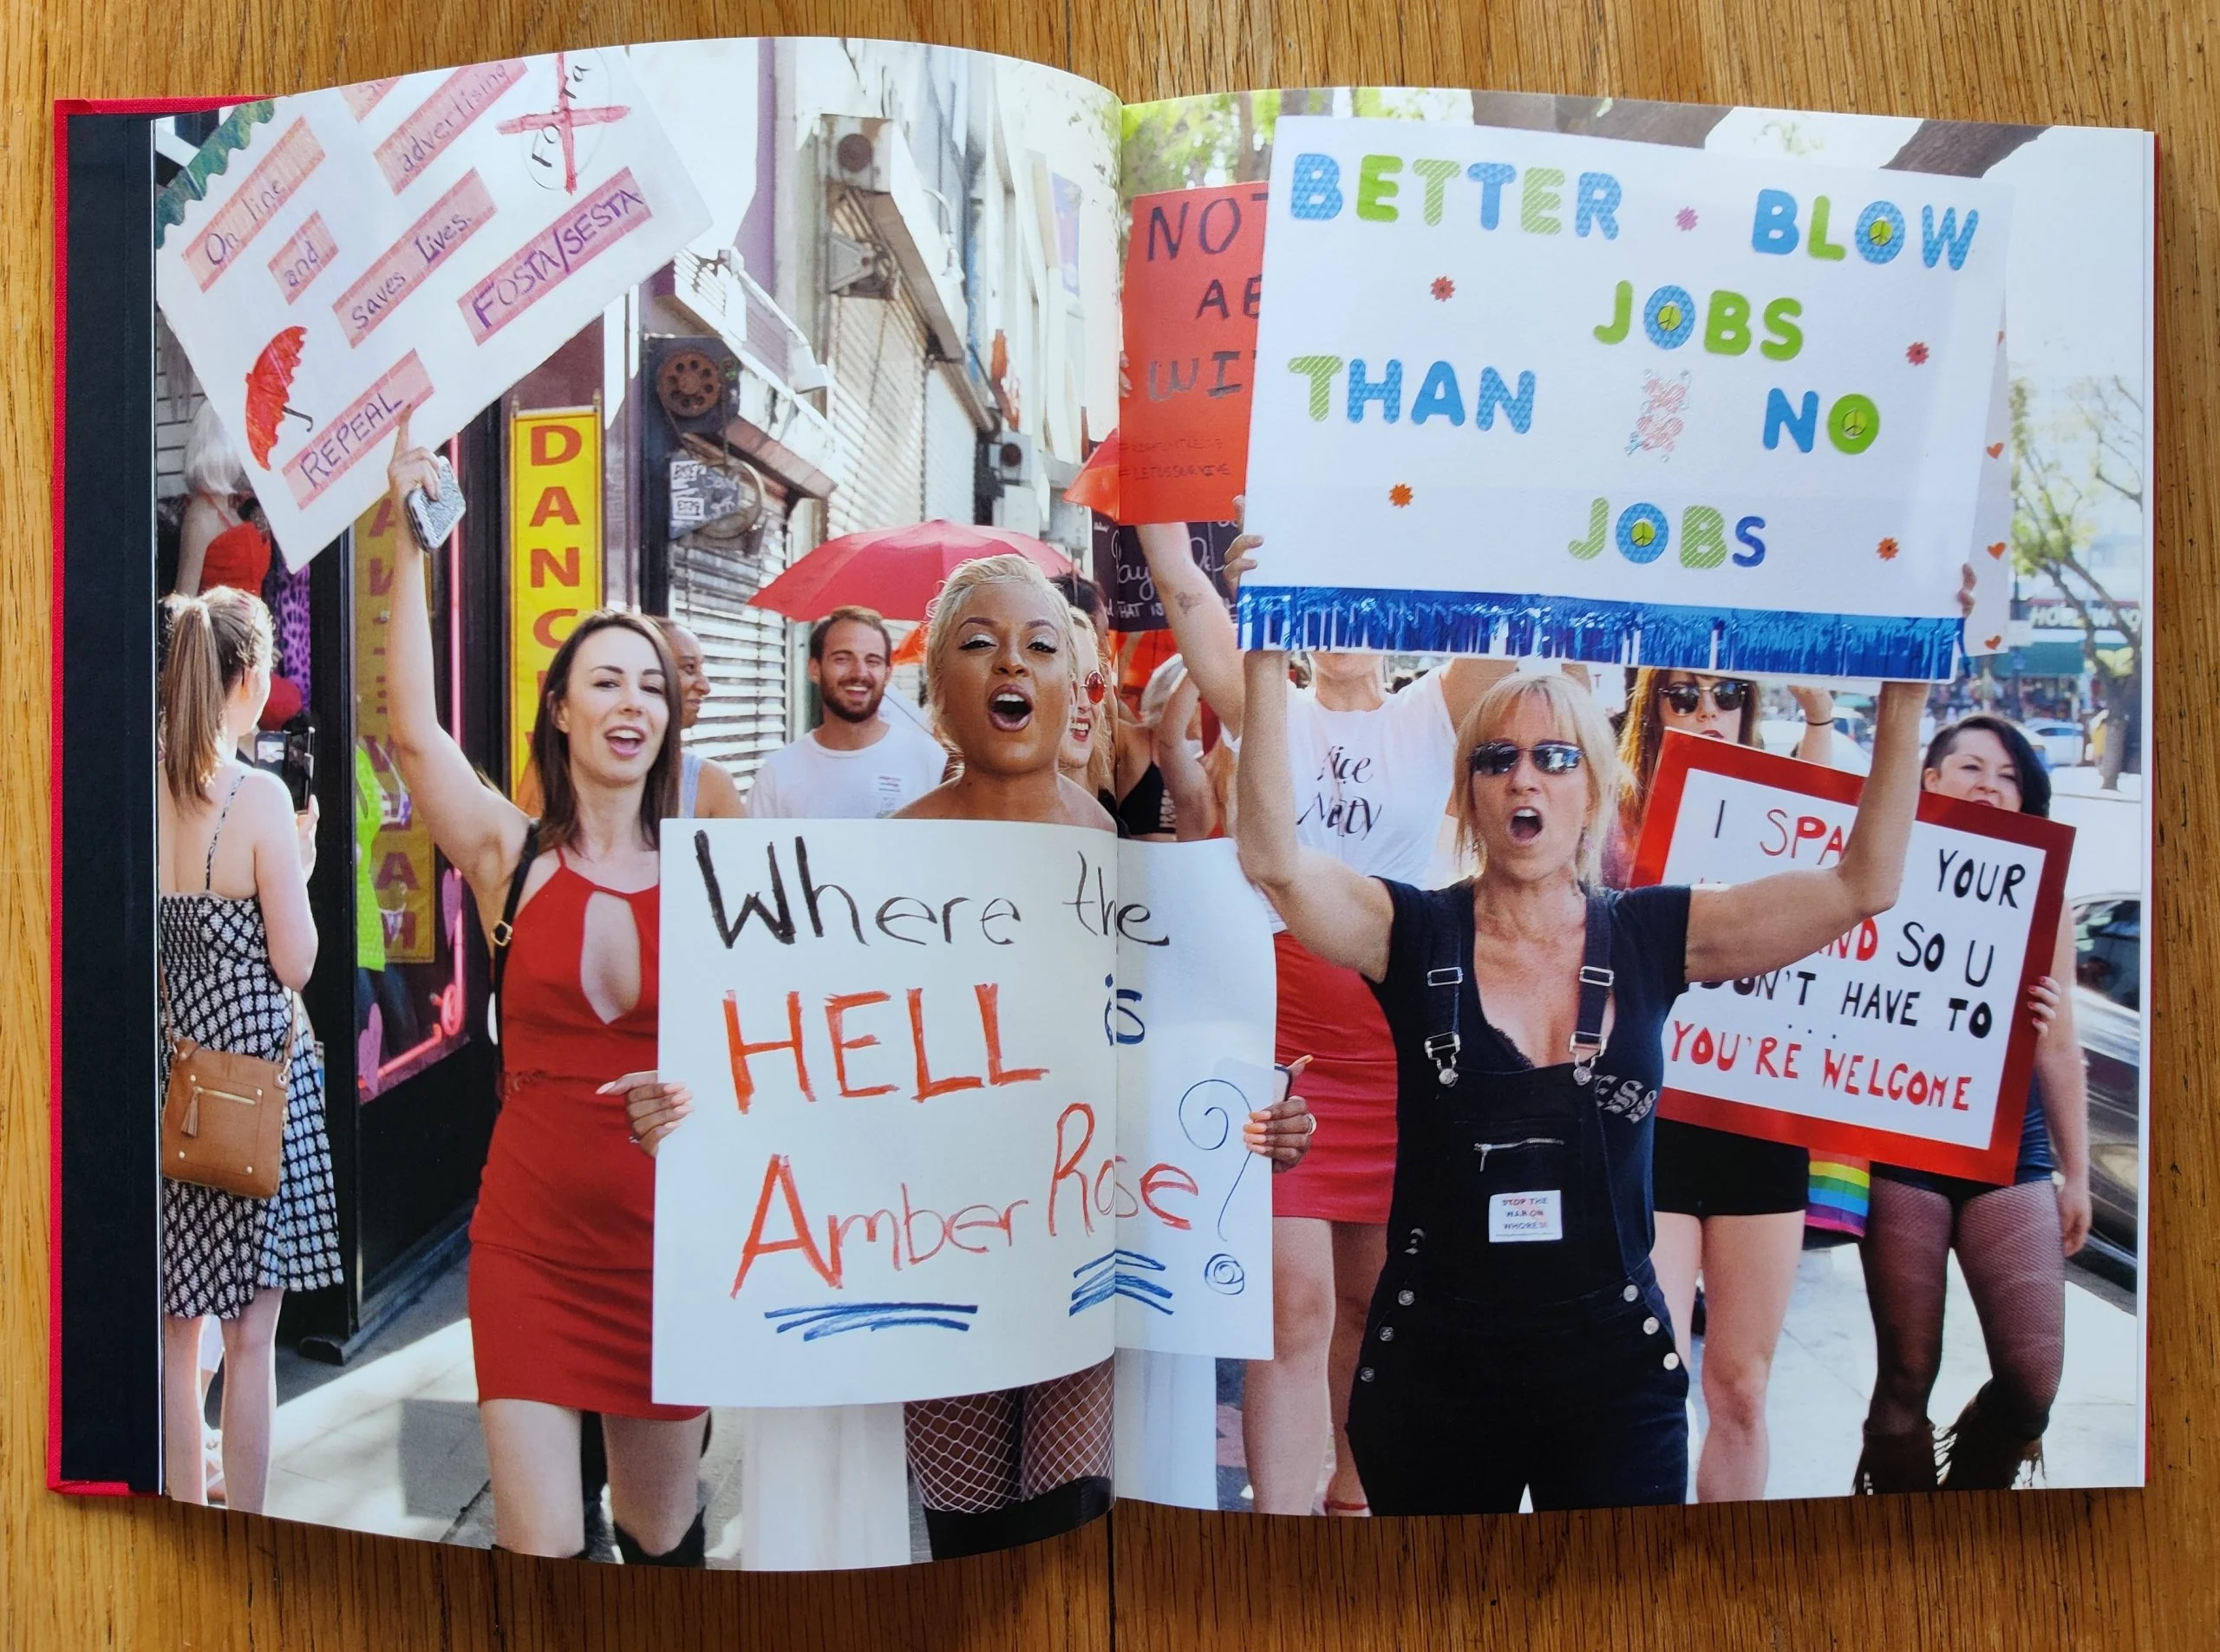 advertising
On line
and
saves Lives.
FOSTA/SESTA
REPEAL
DANC
Where the
HELL is
Amber Rose?
NOT
WI
THAT IS
BETTER BLOW
JOBS
THAN NO
JOBS
Nice
I SPA YOUR
ND SO U
DON'T HAVE TO
...
YOU'RE WELCOME
STOP THE
WAR ON
WHORES!